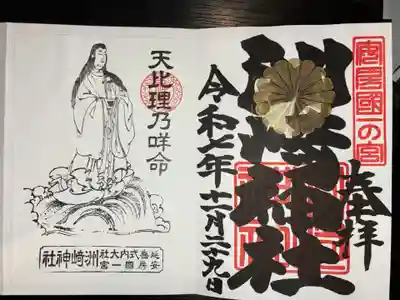 安房國一の宮
奉拝
洲崎神社
令和七年十一月二十九日
天比理乃咩命
延喜式内大社
安房國一宮
洲崎神社